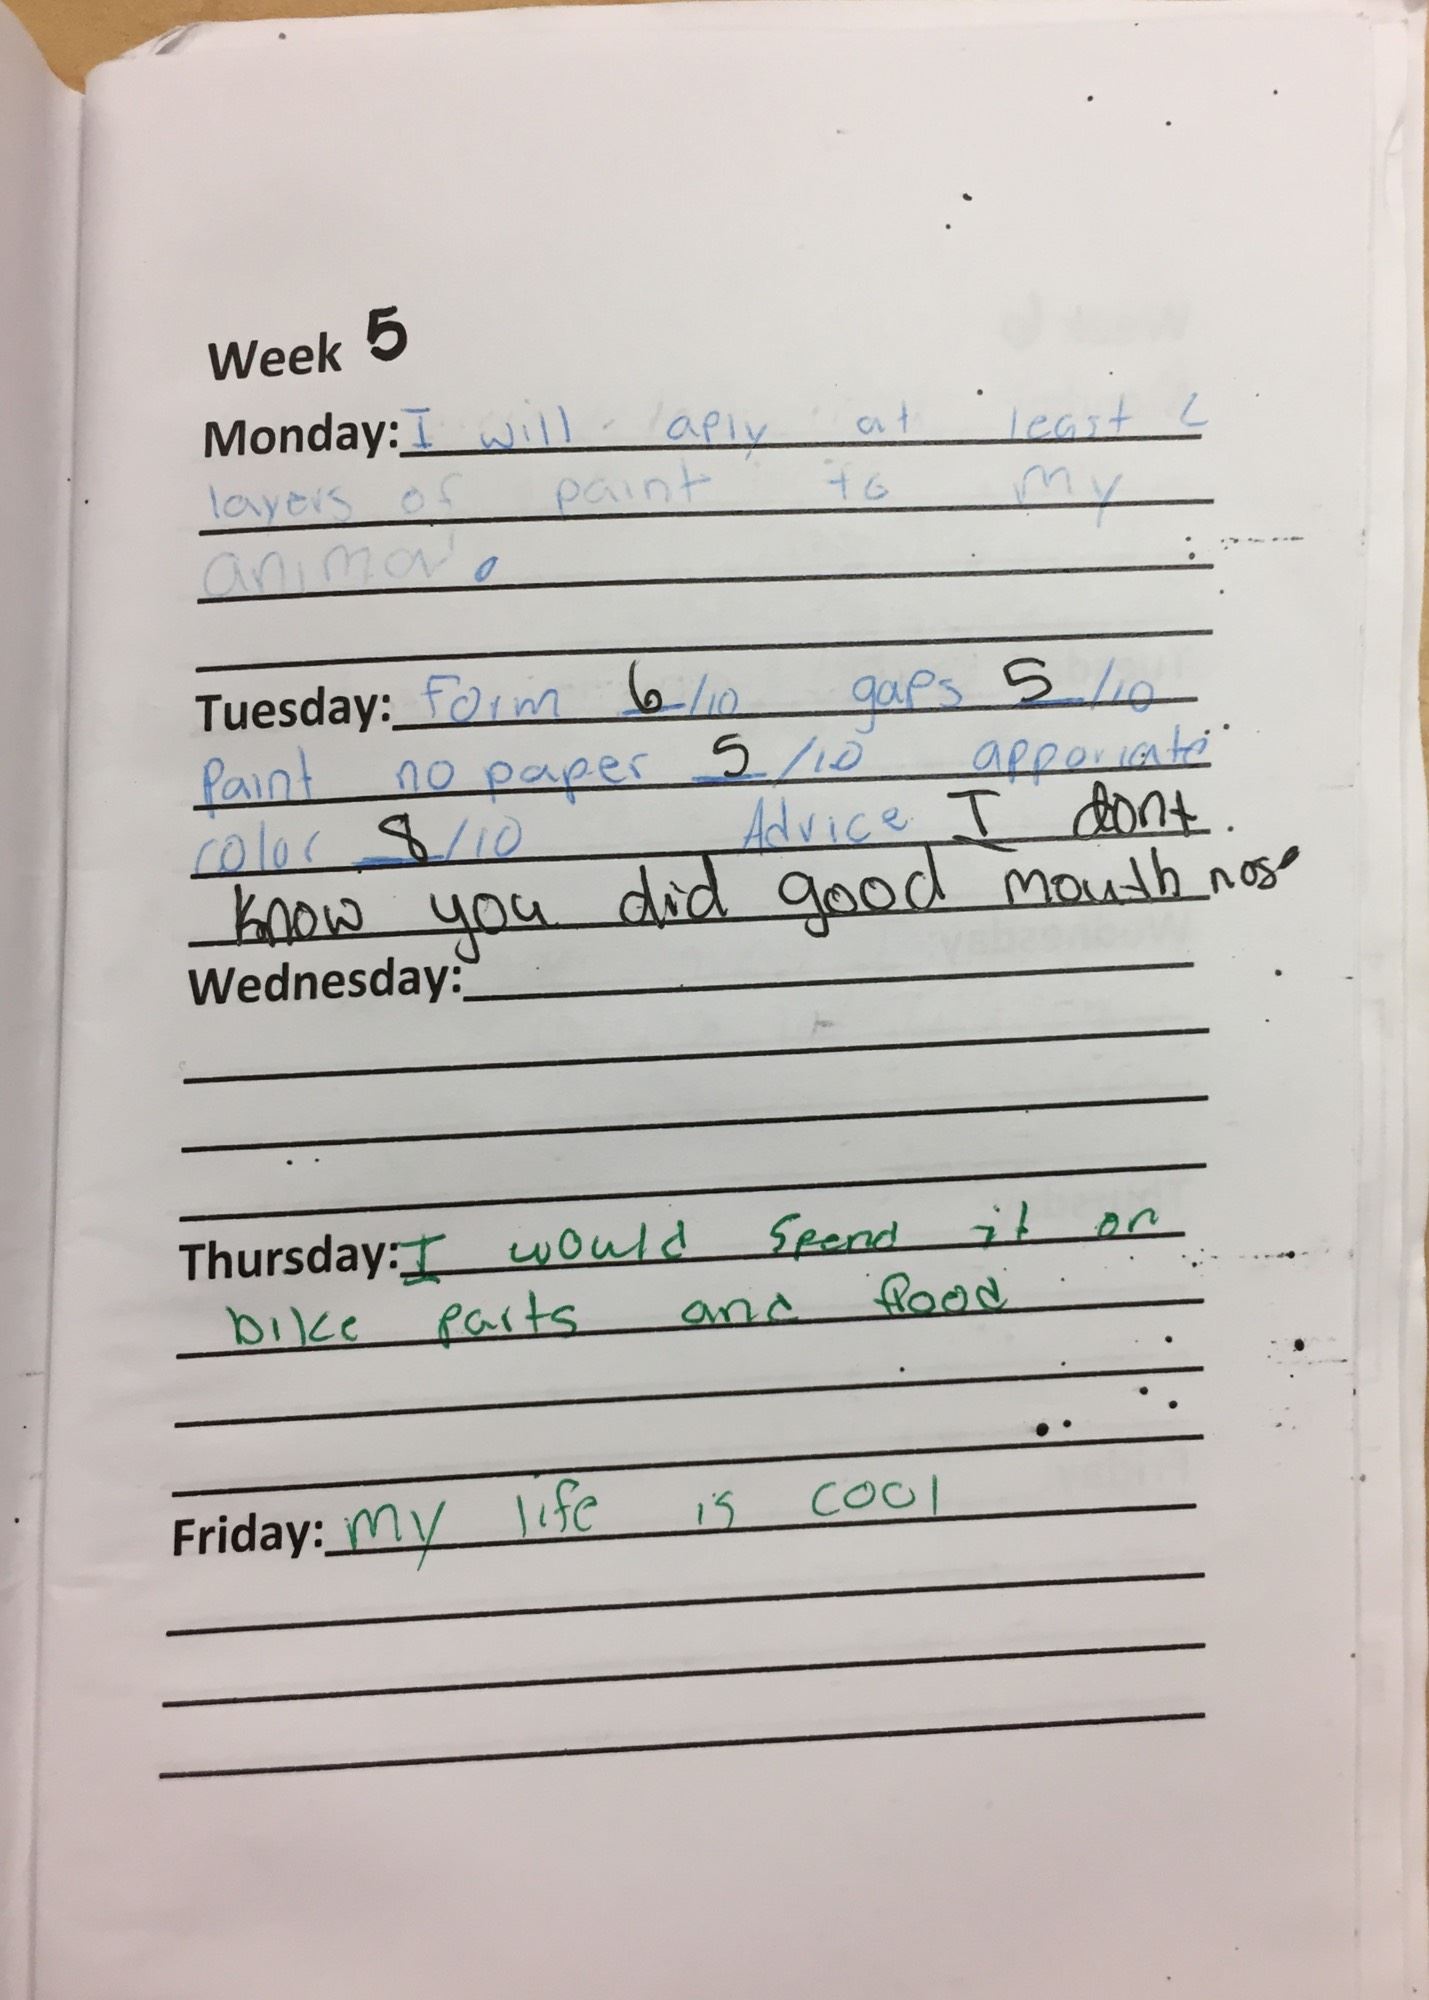 Week 5
Monday: I will aply at least
layers of paint to my
animal.
Tuesday: form 6/10 gaps 5/10
Paint no paper 5/10 apporiate
color 8/10 Advice I dont
know you did good mouth nose
Wednesday:
Thursday: I would spend it on
bike parts and flood
Friday: my life is cool